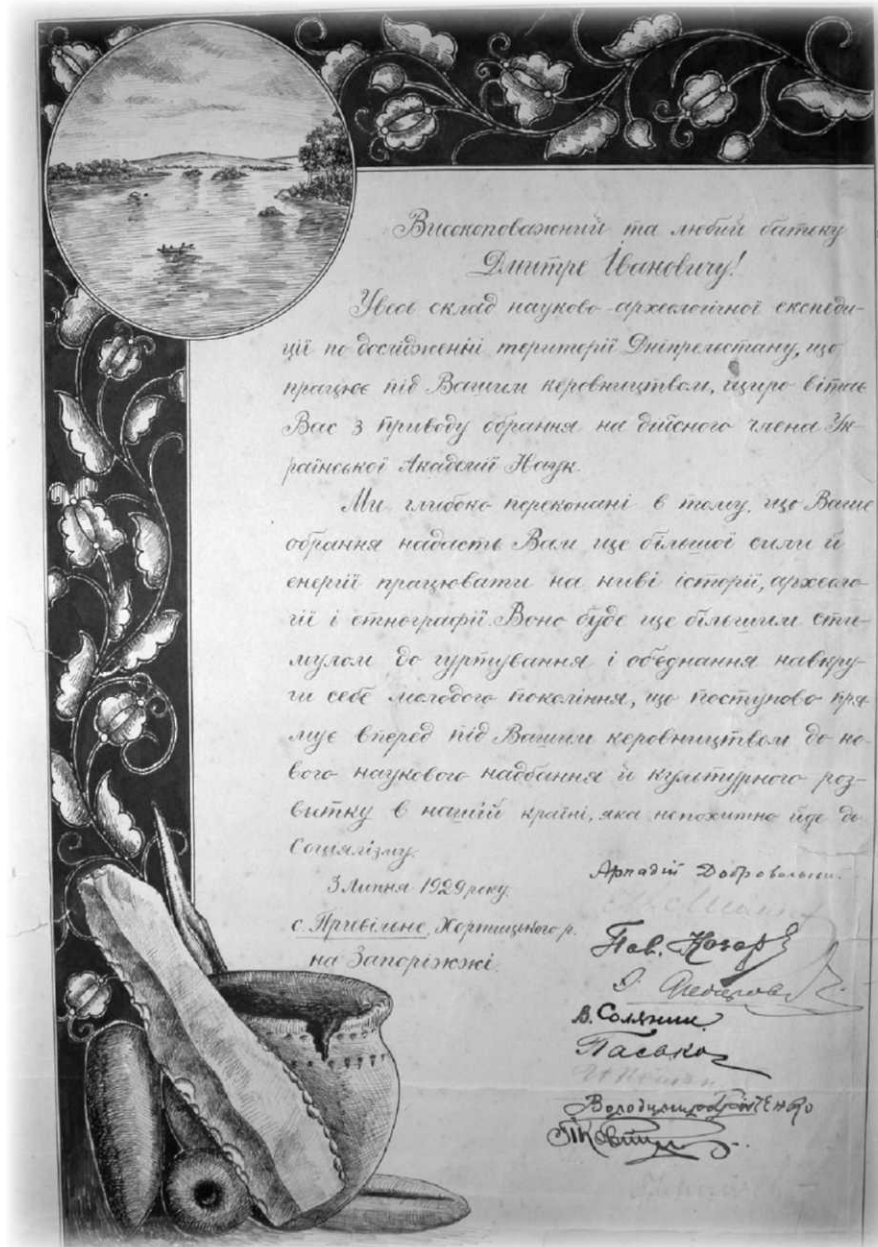 Високоповажний та любий батьку
Дмитре Івановичу!
Увесь склад науково-археологічної експеди-
ції по дослідженні території Дніпрельстану, що
працює під Вашим керовництвом, щиро вітає
Вас з приводу обрання на дійсного члена Ук-
раїнської Академії Наук.
Ми глибоко переконані в тому, що Ваше
обрання надасть Вам ще більшої сили й
енергії працювати на ниві історії, археоло-
гії і етнографії. Воно буде ще більшим сти-
мулом до гуртування і об'єднання навкру-
ги себе молодого покоління, що поступово пря-
мує вперед під Вашим керовництвом до но-
вого наукового надбання й культурного роз-
витку в нашій країні, яка непохитно йде до
Соціялізму.
3 Липня 1929 року.
с. Привільне, Хортицького р.
на Запоріжжі.
Аркадій Добровольський
Пав. Козар
В. Соляник
Пасько
Володимир Грінченко